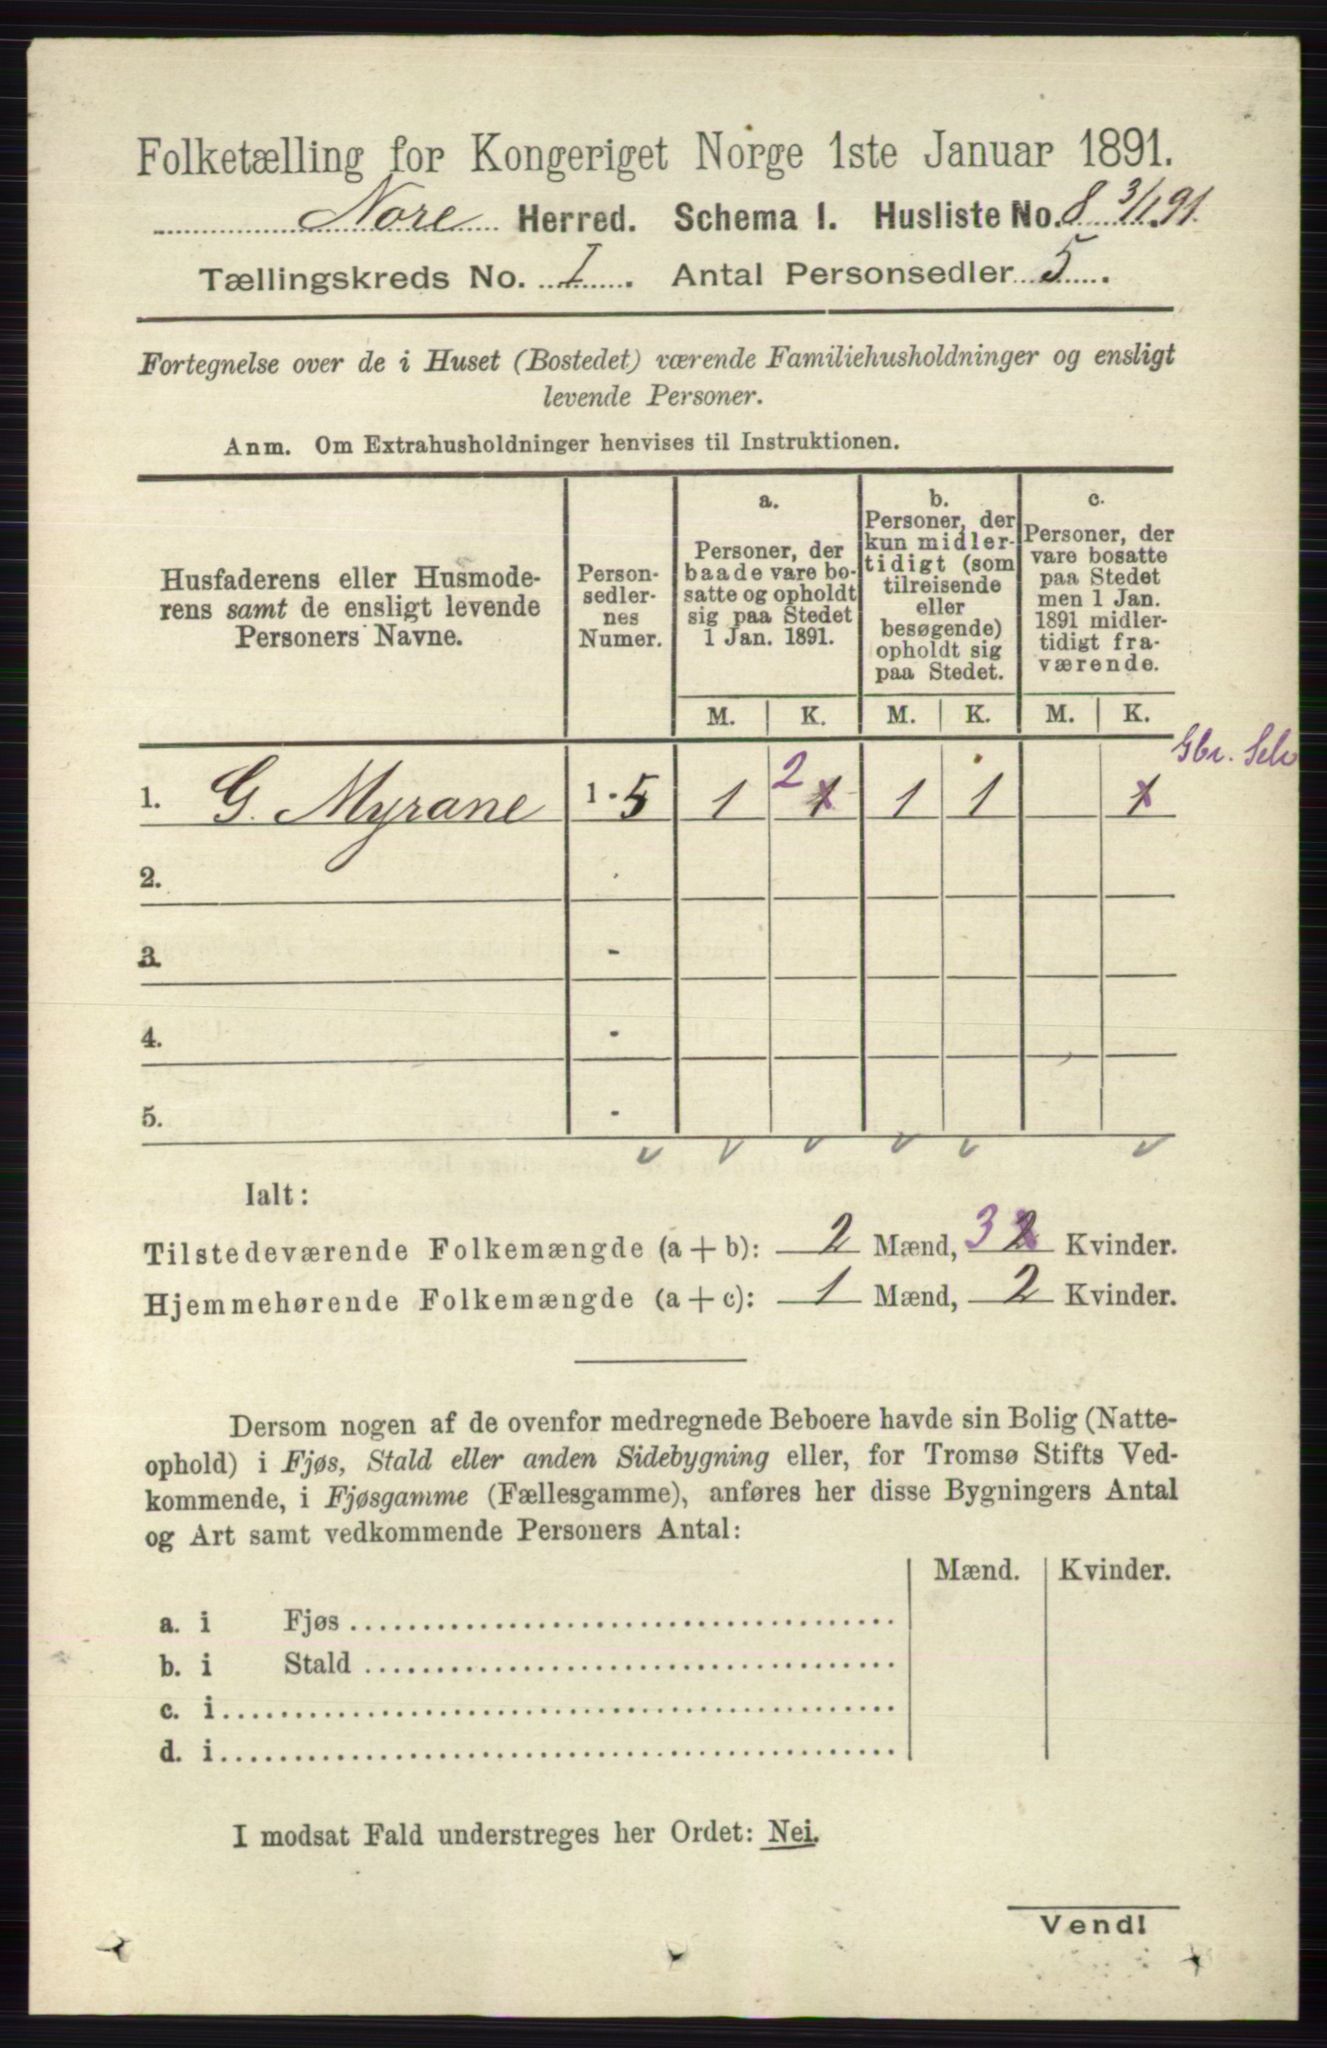 Folketælling for Kongeriget Norge 1ste Januar 1891.
Nore Herred. Schema I. Husliste No. 8 3/1 91.
Tællingskreds No. I. Antal Personsedler 5.
Fortegnelse over de i Huset (Bostedet) værende Familiehusholdninger og ensligt
levende Personer.
Anm. Om Extrahusholdninger henvises til Instruktionen.
Husfaderens eller Husmode-
rens samt de ensligt levende
Personers Navne.
Person-
sedler-
nes
Numer.
a.
Personer, der
baade vare bo-
satte og opholdt
sig paa Stedet
1 Jan. 1891.
b.
Personer, der
kun midler-
tidigt (som
tilreisende
eller
besøgende)
opholdt sig
paa Stedet.
c.
Personer, der
vare bosatte
paa Stedet
men 1 Jan.
1891 midler-
tidigt fra-
værende.
M. K. M. K. M. K.
Gbr. Selv
1. G. Myrane 1 - 5 1 2 1 1 1 1
2.
3. -
4. -
5. -
Ialt:
Tilstedeværende Folkemængde (a + b): 2 Mænd, 3 2 Kvinder.
Hjemmehørende Folkemængde (a + c): 1 Mænd, 2 Kvinder.
Dersom nogen af de ovenfor medregnede Beboere havde sin Bolig (Natte-
ophold) i Fjøs, Stald eller anden Sidebygning eller, for Tromsø Stifts Ved-
kommende, i Fjøsgamme (Fællesgamme), anføres her disse Bygningers Antal
og Art samt vedkommende Personers Antal:
Mænd. Kvinder.
a. i Fjøs
b. i Stald
c. i
d. i
I modsat Fald understreges her Ordet: Nei.
Vend!